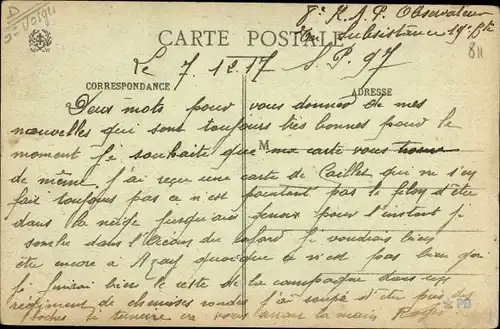 D
Vosges
8e R.A.P. Observateur
En Subsistance 19e Bie
811
CARTE POSTALE
Le 7.12.17 S.P. 97
CORRESPONDANCE
ADRESSE
Deux mots pour vous donner de mes
nouvelles qui sont toujours très bonnes pour le
moment je souhaite que ma carte vous trouve
M
de même. J'ai reçu une carte de Caillet qui ne s'en
fait toujours pas ce n'est pourtant pas le filon d'être
dans la neige jusqu'aux genoux pour l'instant je
sombre dans l'Océan du cafard je voudrais bien
être encore à Azay quoique ce n'est pas bien gai
je finirai bien le reste de la campagne dans un
régiment de chemises rondes j'ai soupé d'être
la main Roger
PB